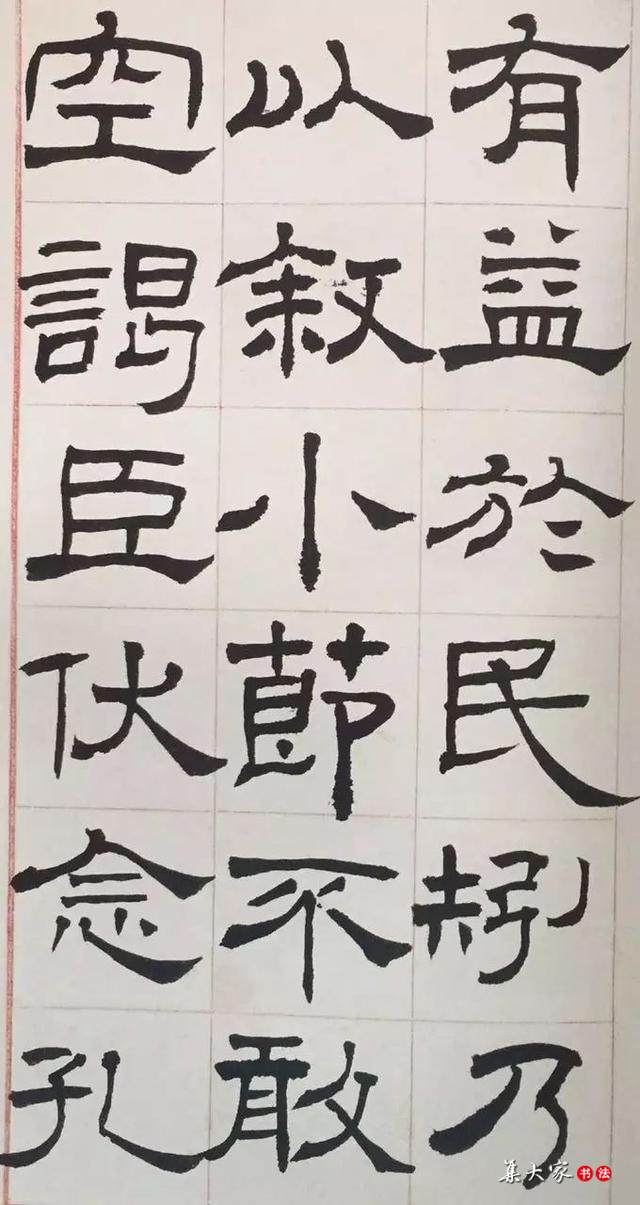 有益於民矧乃
以敘小節不敢
空謁臣伏念孔
集大家书法